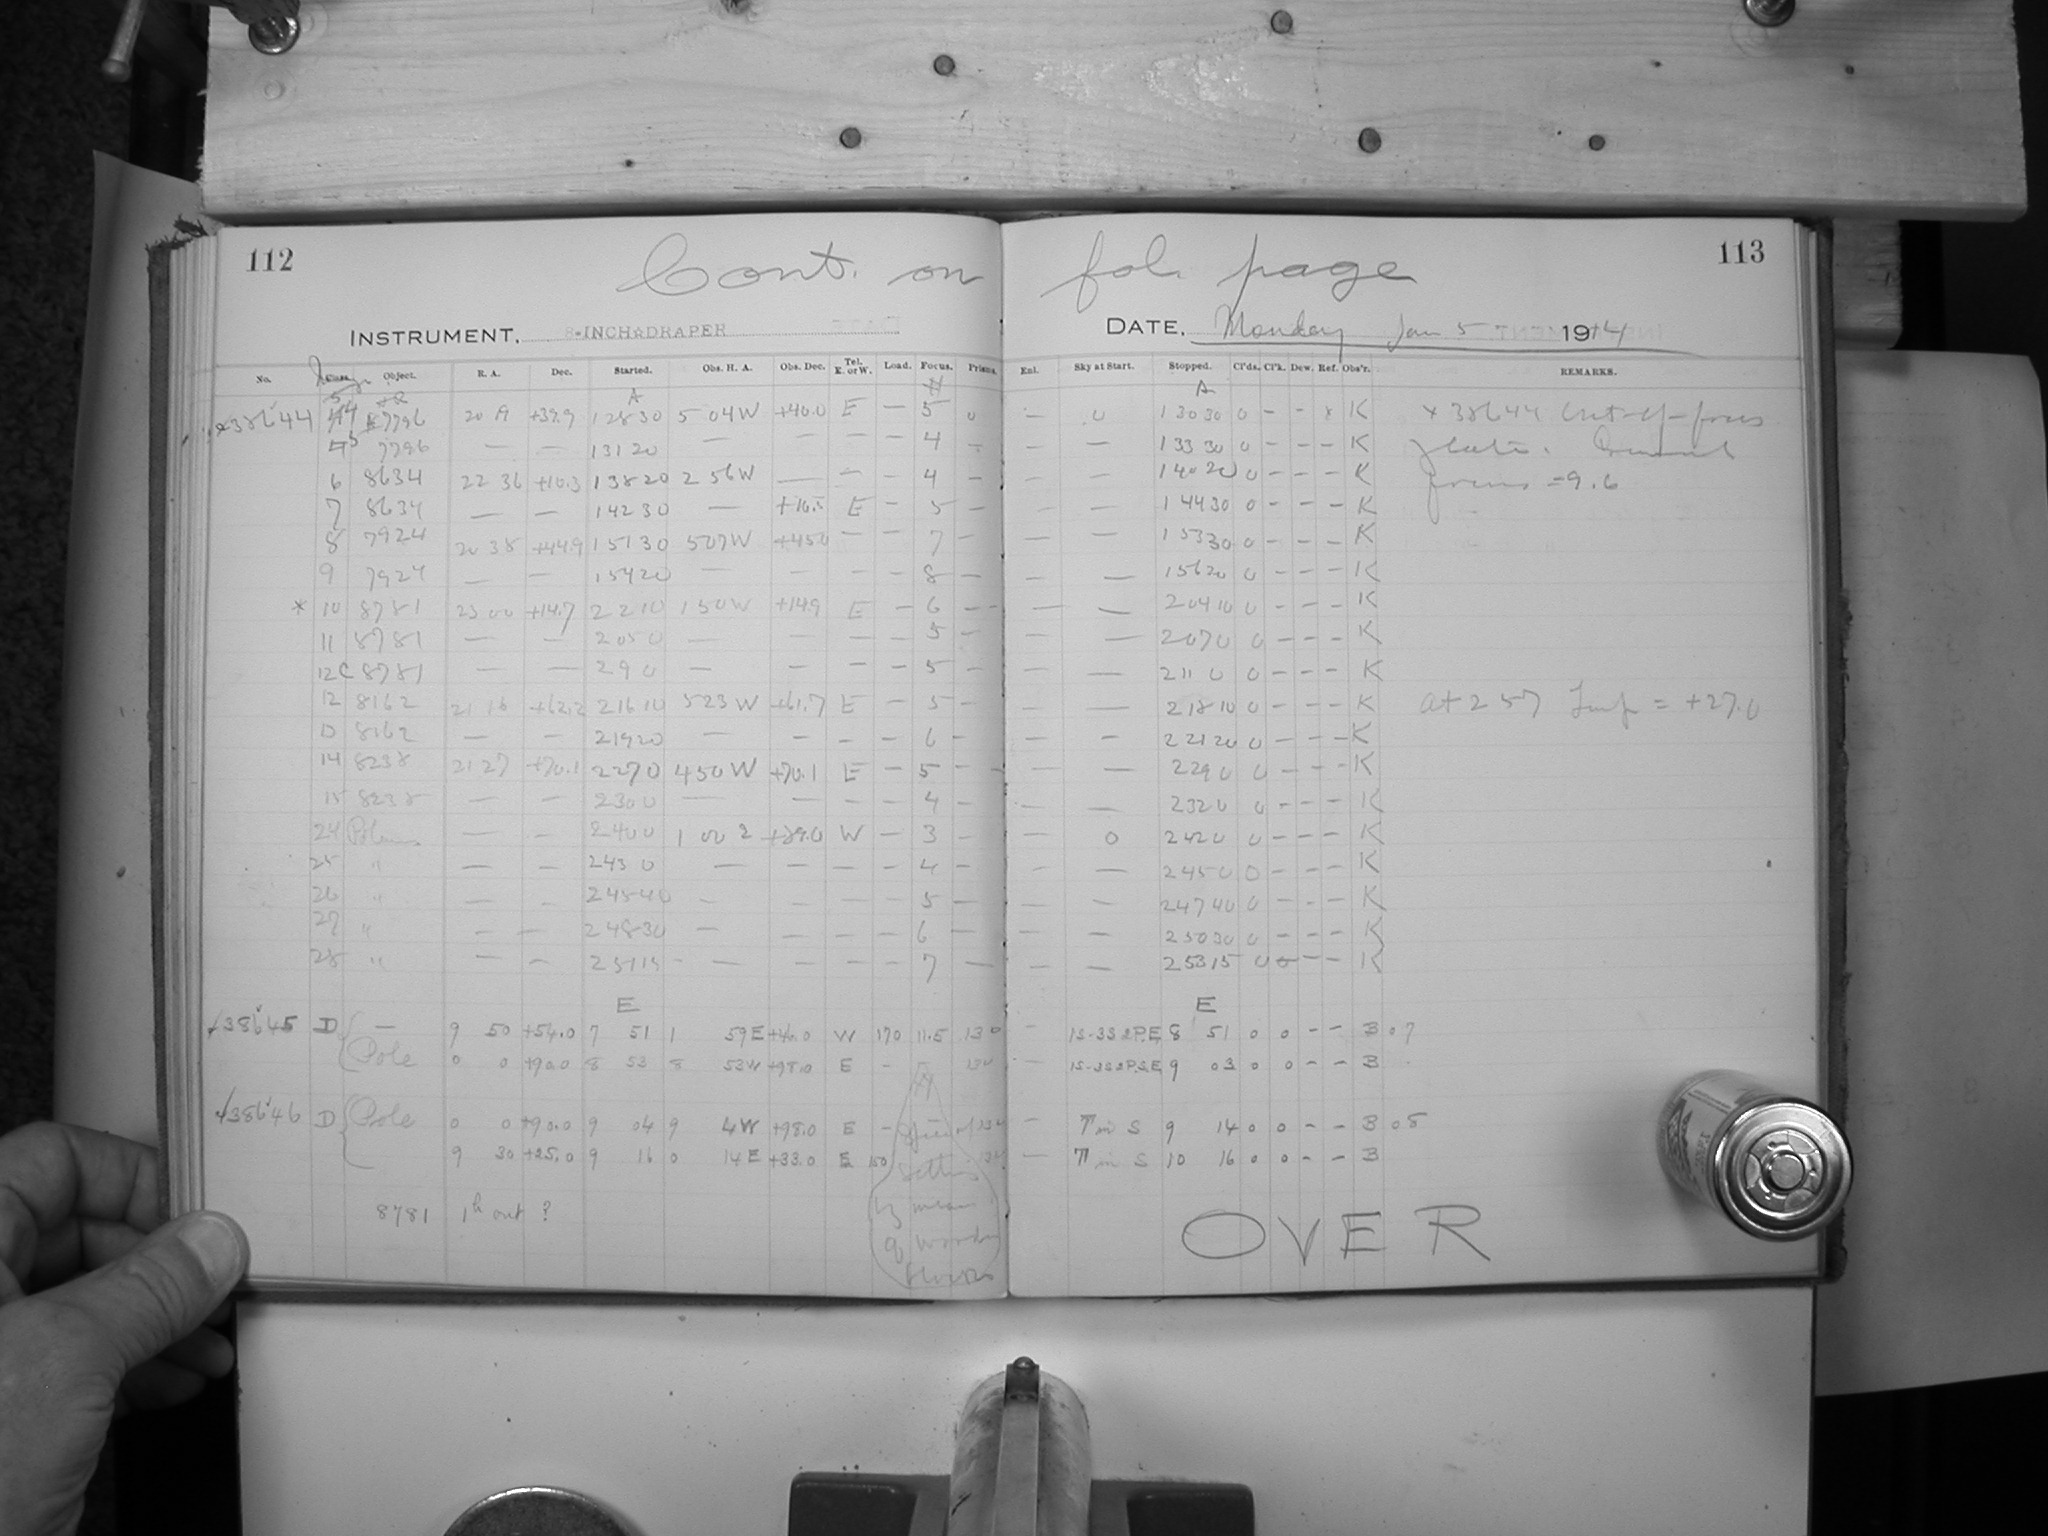 112
Cont. on fol. page
113
INSTRUMENT. 8-INCH DRAPER
DATE. Monday Jan 5 1914
No. Object. R. A. Dec. Started. Obs. H. A. Obs. Dec. Tel. E. or W. Load. Focus. Prisms. Enl. Sky at Start. Stopped. Cl'ds. Cl'k. Dew. Ref. Obs'r. REMARKS.
A A
x38644 7796 +39.9 1 28 30 5 04 W +40.0 E — 5 0 — 0 1 30 30 0 - - x K x 38644 Out-of-focus
7796 — — 1 31 20 — — — — 4 - — — 1 33 30 0 - - - K plate.
6 8634 22 36 +10.3 1 38 20 2 56 W — — — 4 - — — 1 40 20 0 - - - K focus = 9.6
7 8634 — — 1 42 30 — E — 5 - — — 1 44 30 0 - - - K
8 7924 20 38 +44.9 1 51 30 5 07 W +45.0 — — 7 - — — 1 53 30 0 - - - K
9 7924 — — 1 54 20 — — — — 8 — — — 1 56 20 0 - - - K
* 10 8781 23 00 +14.7 2 2 10 1 50 W +14.9 E — 6 - — — 2 04 10 0 - - - K
11 8781 — — 2 05 0 — — — — 5 - — — 2 07 0 0 - - - K
12C 8781 — — 2 9 0 — — — — 5 - — — 2 11 0 0 - - - K
12 8162 21 16 +62.2 2 16 10 5 23 W +61.7 E — 5 - — — 2 18 10 0 - - - K at 2 57 Temp = +27.0
13 8162 — — 2 19 20 — — — — 6 - — — 2 21 20 0 - - - K
14 8238 21 27 +70.1 2 27 0 4 50 W +70.1 E — 5 - — — 2 29 0 0 - - - K
15 8238 — — 2 30 0 — — — — 4 - — — 2 32 0 0 - - - K
24 Polaris — — 2 40 0 1 00 2 +89.0 W — 3 - — 0 2 42 0 0 - - - K
25 " — — 2 43 0 — — — — 4 - — — 2 45 0 0 - - - K
26 " — — 2 45 40 — — — — 5 — — — 2 47 40 0 - - - K
27 " — — 2 48 30 — — — — 6 — — — 2 50 30 0 - - - K
28 " — — 2 51 15 — — — — 7 — — — 2 53 15 0 - - - K
E E
38645 D — 9 50 +54.0 7 51 1 59 E W 170 11.5 130 — 15-3S2P.E 8 51 0 0 - - B 07
Pole 0 0 +90.0 8 53 8 53 W +98.0 E - 130 15-3S2P.S.E 9 03 0 0 - - B
38646 D Pole 0 0 +90.0 9 04 9 4 W +98.0 E - — in S 9 14 0 0 - - B 05
9 30 +25.0 9 16 0 14 E +33.0 E 150 — in S 10 16 0 0 - - B
setting
by means
of wooden
blocks
8781 1h out ?
OVER